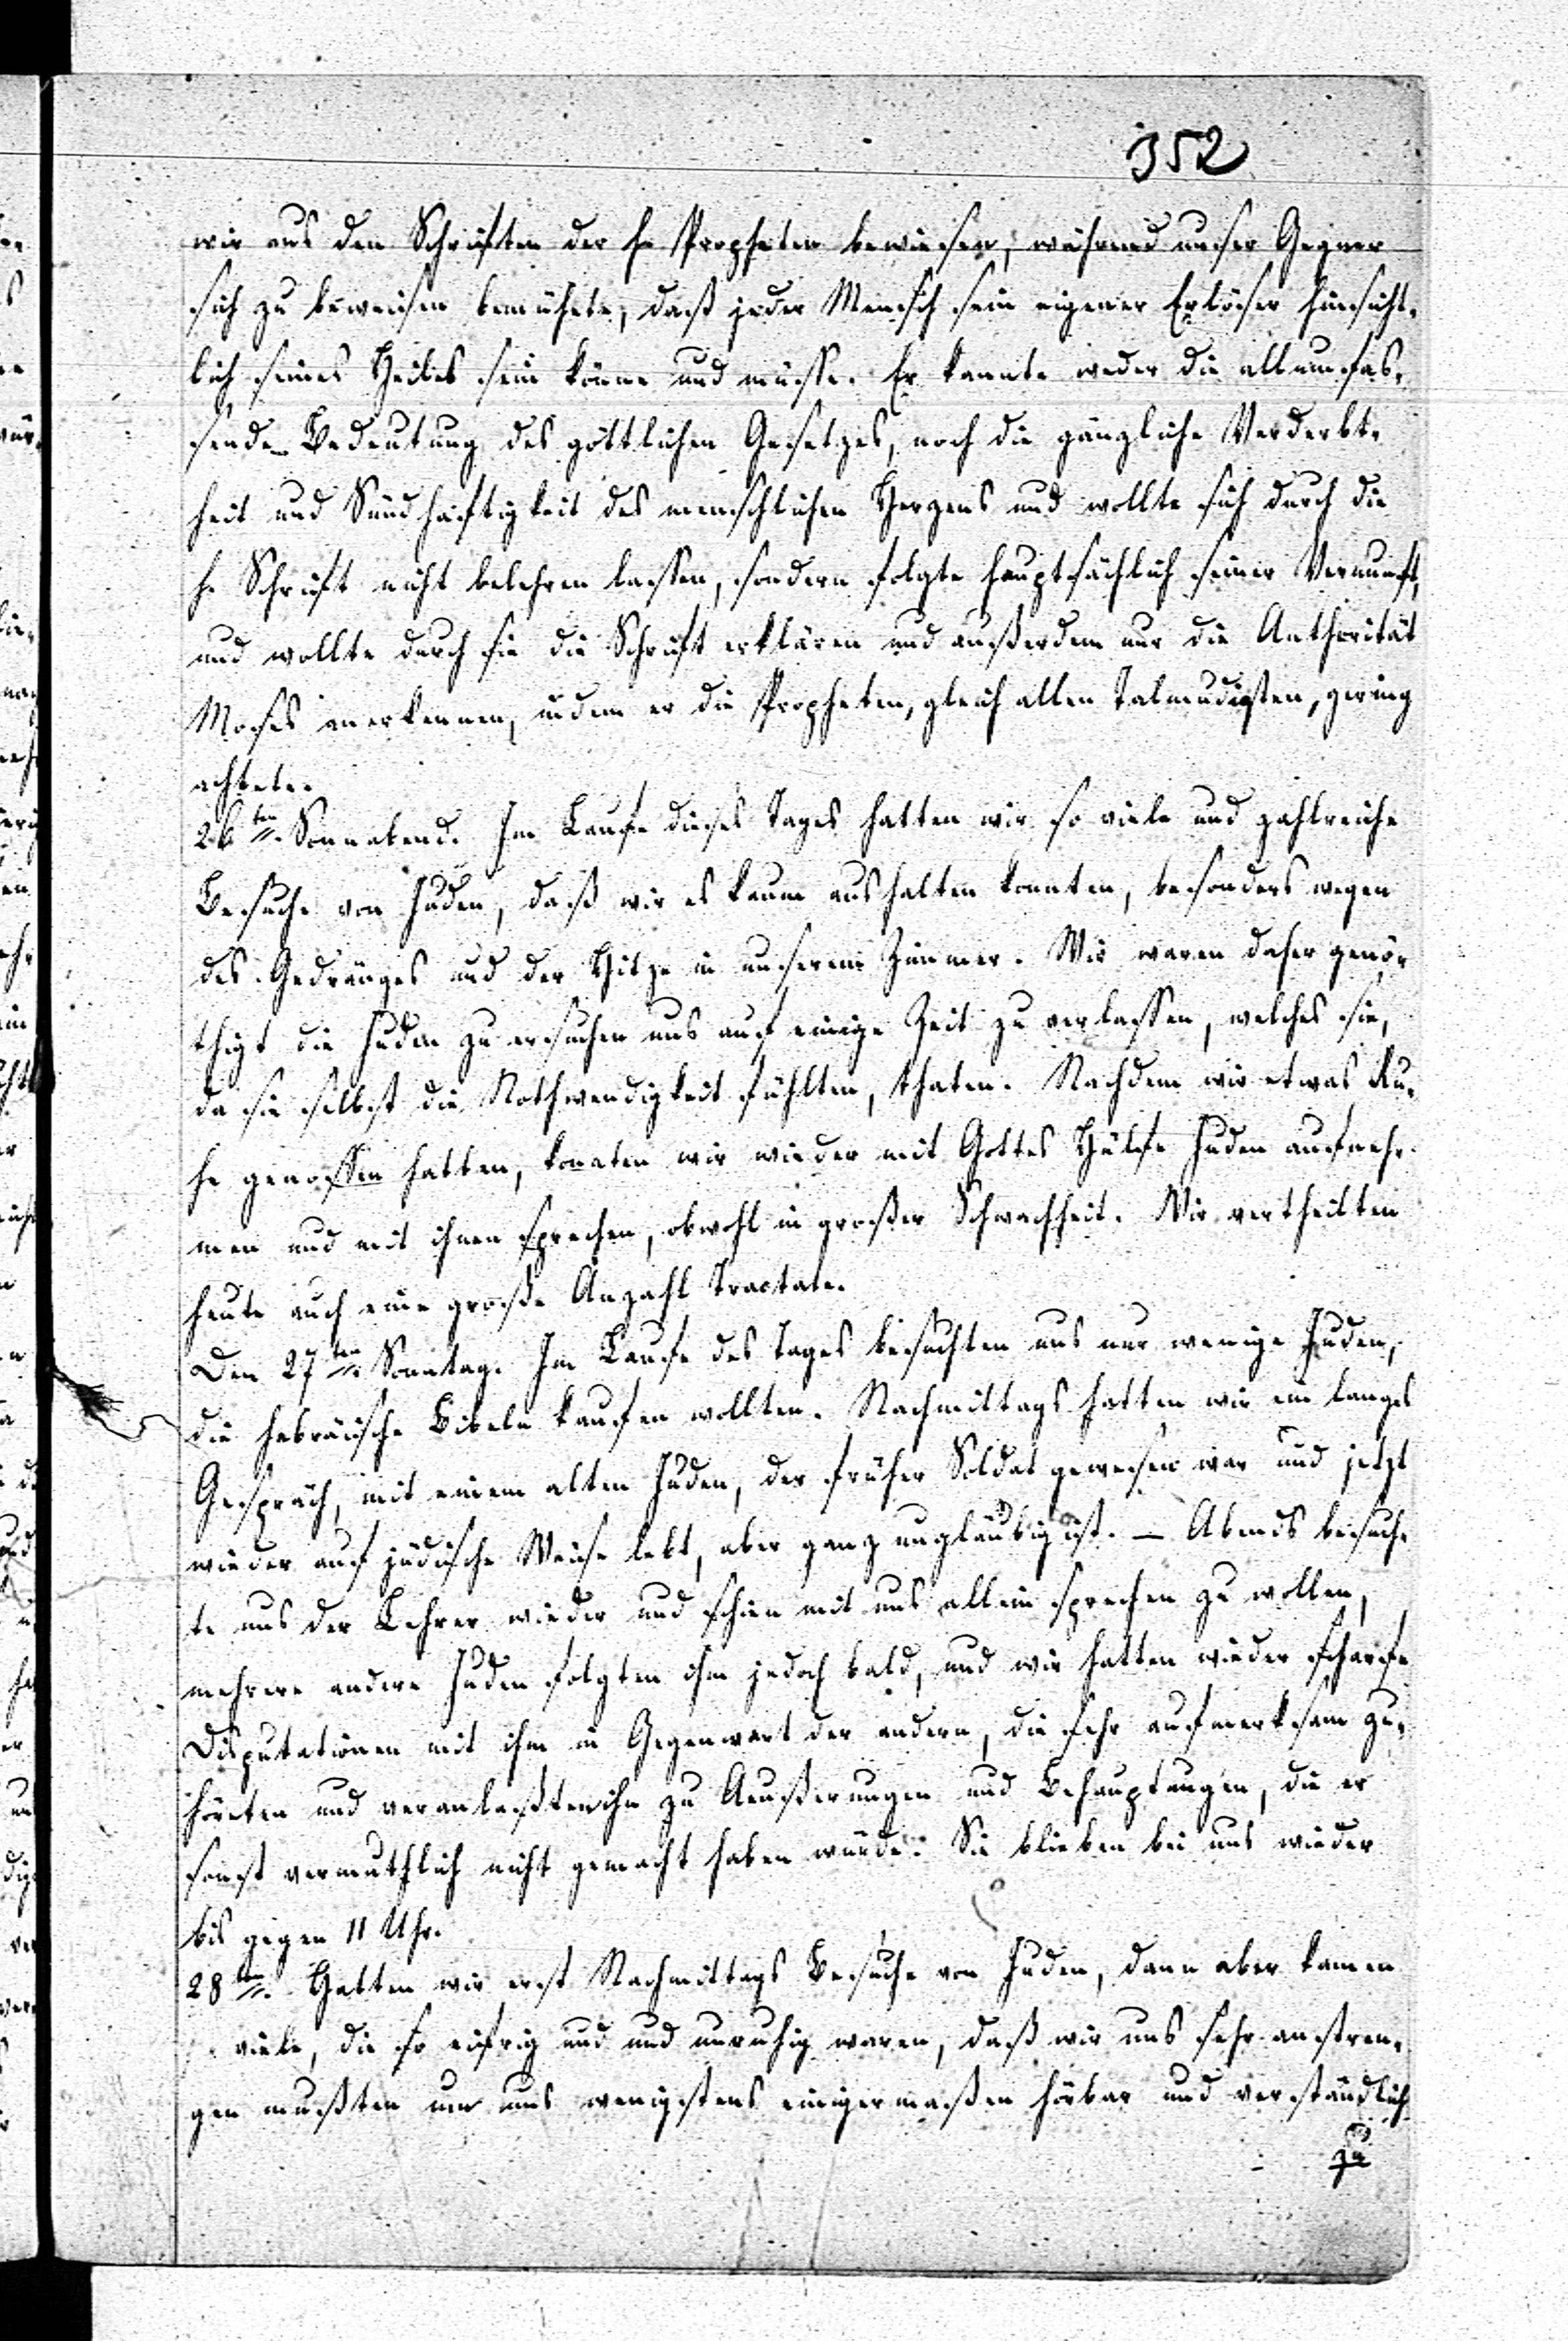 352
wir aus den Schriften der h. Propheten bewiesen, während unser Gegner
sich zu beweisen bemühete, daß jeder Mensch sein eigener Erlöser hinsicht-
lich seines Heiles sein könne und müsse. Er kannte weder die allumfas-
sende Bedeutung des göttlichen Gesetzes, noch die gänzliche Verderbt-
heit und Sündhaftigkeit des menschlichen Herzens und wollte sich durch die
h. Schrift nicht belehren lassen, sondern folgte hauptsächlich seiner Vernunft,
und wollte durch sie die Schrift erklären und außerdem nur die Authorität
Moses anerkennen, indem er die Propheten, gleich allen Talmudisten, gering
achtete.
26ten Sonnabend. Im Laufe dieses Tages hatten wir so viele und zahlreiche
Besuche von Juden, daß wir es kaum aushalten konnten, besonders wegen
des Gedränges und der Hitze in unserem Zimmer. Wir waren daher genö-
thigt die Juden zu ersuchen uns auf einige Zeit zu verlassen, welches sie,
da sie selbst die Nothwendigkeit fühlten, thaten. Nachdem wir etwas Ru-
he genossen hatten, konnten wir wieder mit Gottes Hülfe Juden aufneh-
men und mit ihnen sprechen, obwohl in großer Schwachheit. Wir vertheilten
heute auch eine große Anzahl Tractate.
Den 27ten Sonntag. Im Laufe des Tages besuchten uns nur wenige Juden,
die hebräische Bibeln kaufen wollten. Nachmittags hatten wir ein langes
Gespräch, mit einem alten Juden, der früher Soldat gewesen war und jetzt
wieder auf jüdische Weise lebt, aber ganz ungläubig ist. — Abends besuch-
te uns der Lehrer wieder und schien mit uns allein sprechen zu wollen,
mehrere andere Juden folgten ihm jedoch bald, und wir hatten wieder scharfe
Disputationen mit ihm in Gegenwart der andern, die sehr aufmerksam zu-
hörten und veranlaßten ihn zu Aeußerungen und Behauptungen, die er
sonst vermuthlich nicht gemacht haben würde. Sie blieben bei uns wieder
bis gegen 11 Uhr.
28ten. Hatten wir erst Nachmittags Besuche von Juden, dann aber kamen
viele, die so eifrig und und unruhig waren, daß wir uns sehr anstren-
gen mußten um uns wenigstens einigermaßen hörbar und verständlich
zu